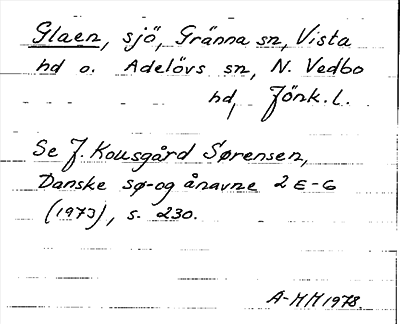 Glaen, sjö, Gränna sn, Vista
hd o. Adelövs sn, N. Vedbo
hd, Jönk. l.
Se J. Kousgård Sørensen,
Danske sø- og ånavne 2 E-G
(1973), s. 230.
A-MM 1978